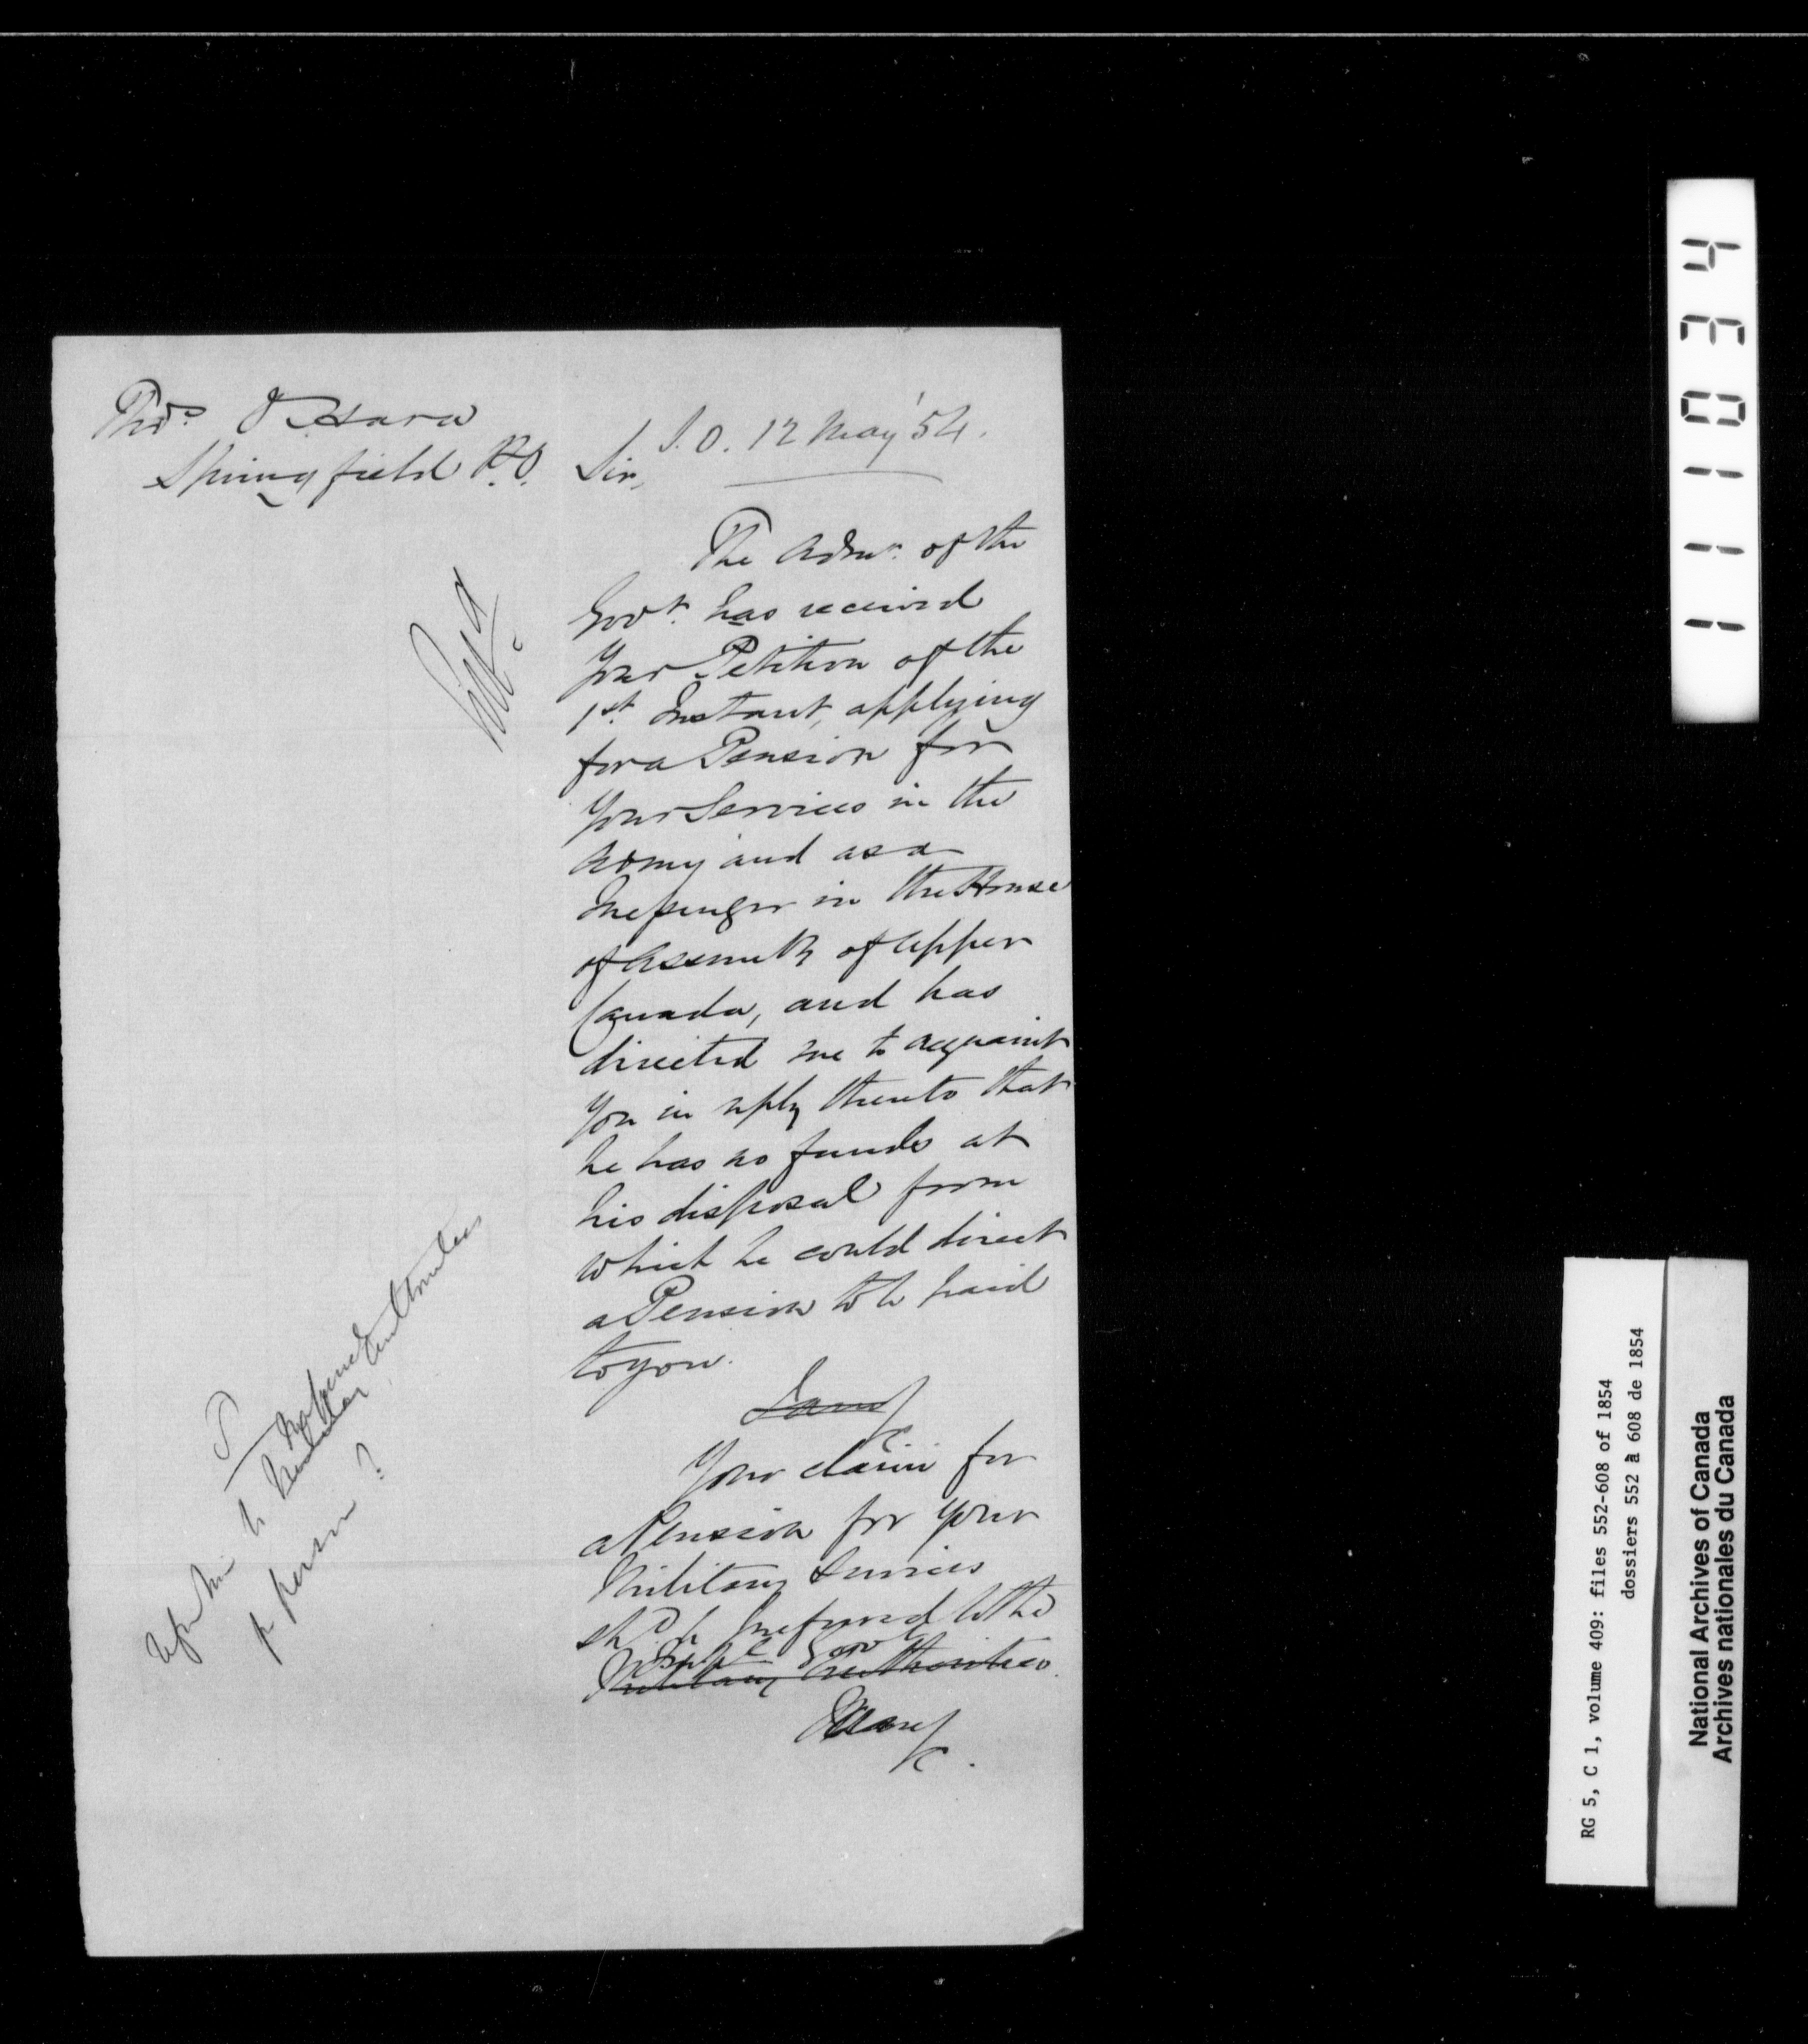 Thos. O'Hara
Springfield P.O.
S.O. 12 May '54.
Sir,
The Admr. of the
Govt. has received
your Petition of the
1st. Instant, applying
for a Pension for
your Services in the
Army and as a
Messenger in the House
of Assembly of Upper
Canada, and has
directed me to acquaint
you in reply thereto that
he has no funds at
his disposal from
which he could direct
a Pension to be paid
to you.
Your claim for
a Pension for your
Military Services
shd. be preferred to the
Impl Gov
Military Authorities.
I have
&c.
authorities
person?
111034
RG 5, C 1, volume 409: files 552-608 of 1854
dossiers 552 à 608 de 1854
National Archives of Canada
Archives nationales du Canada